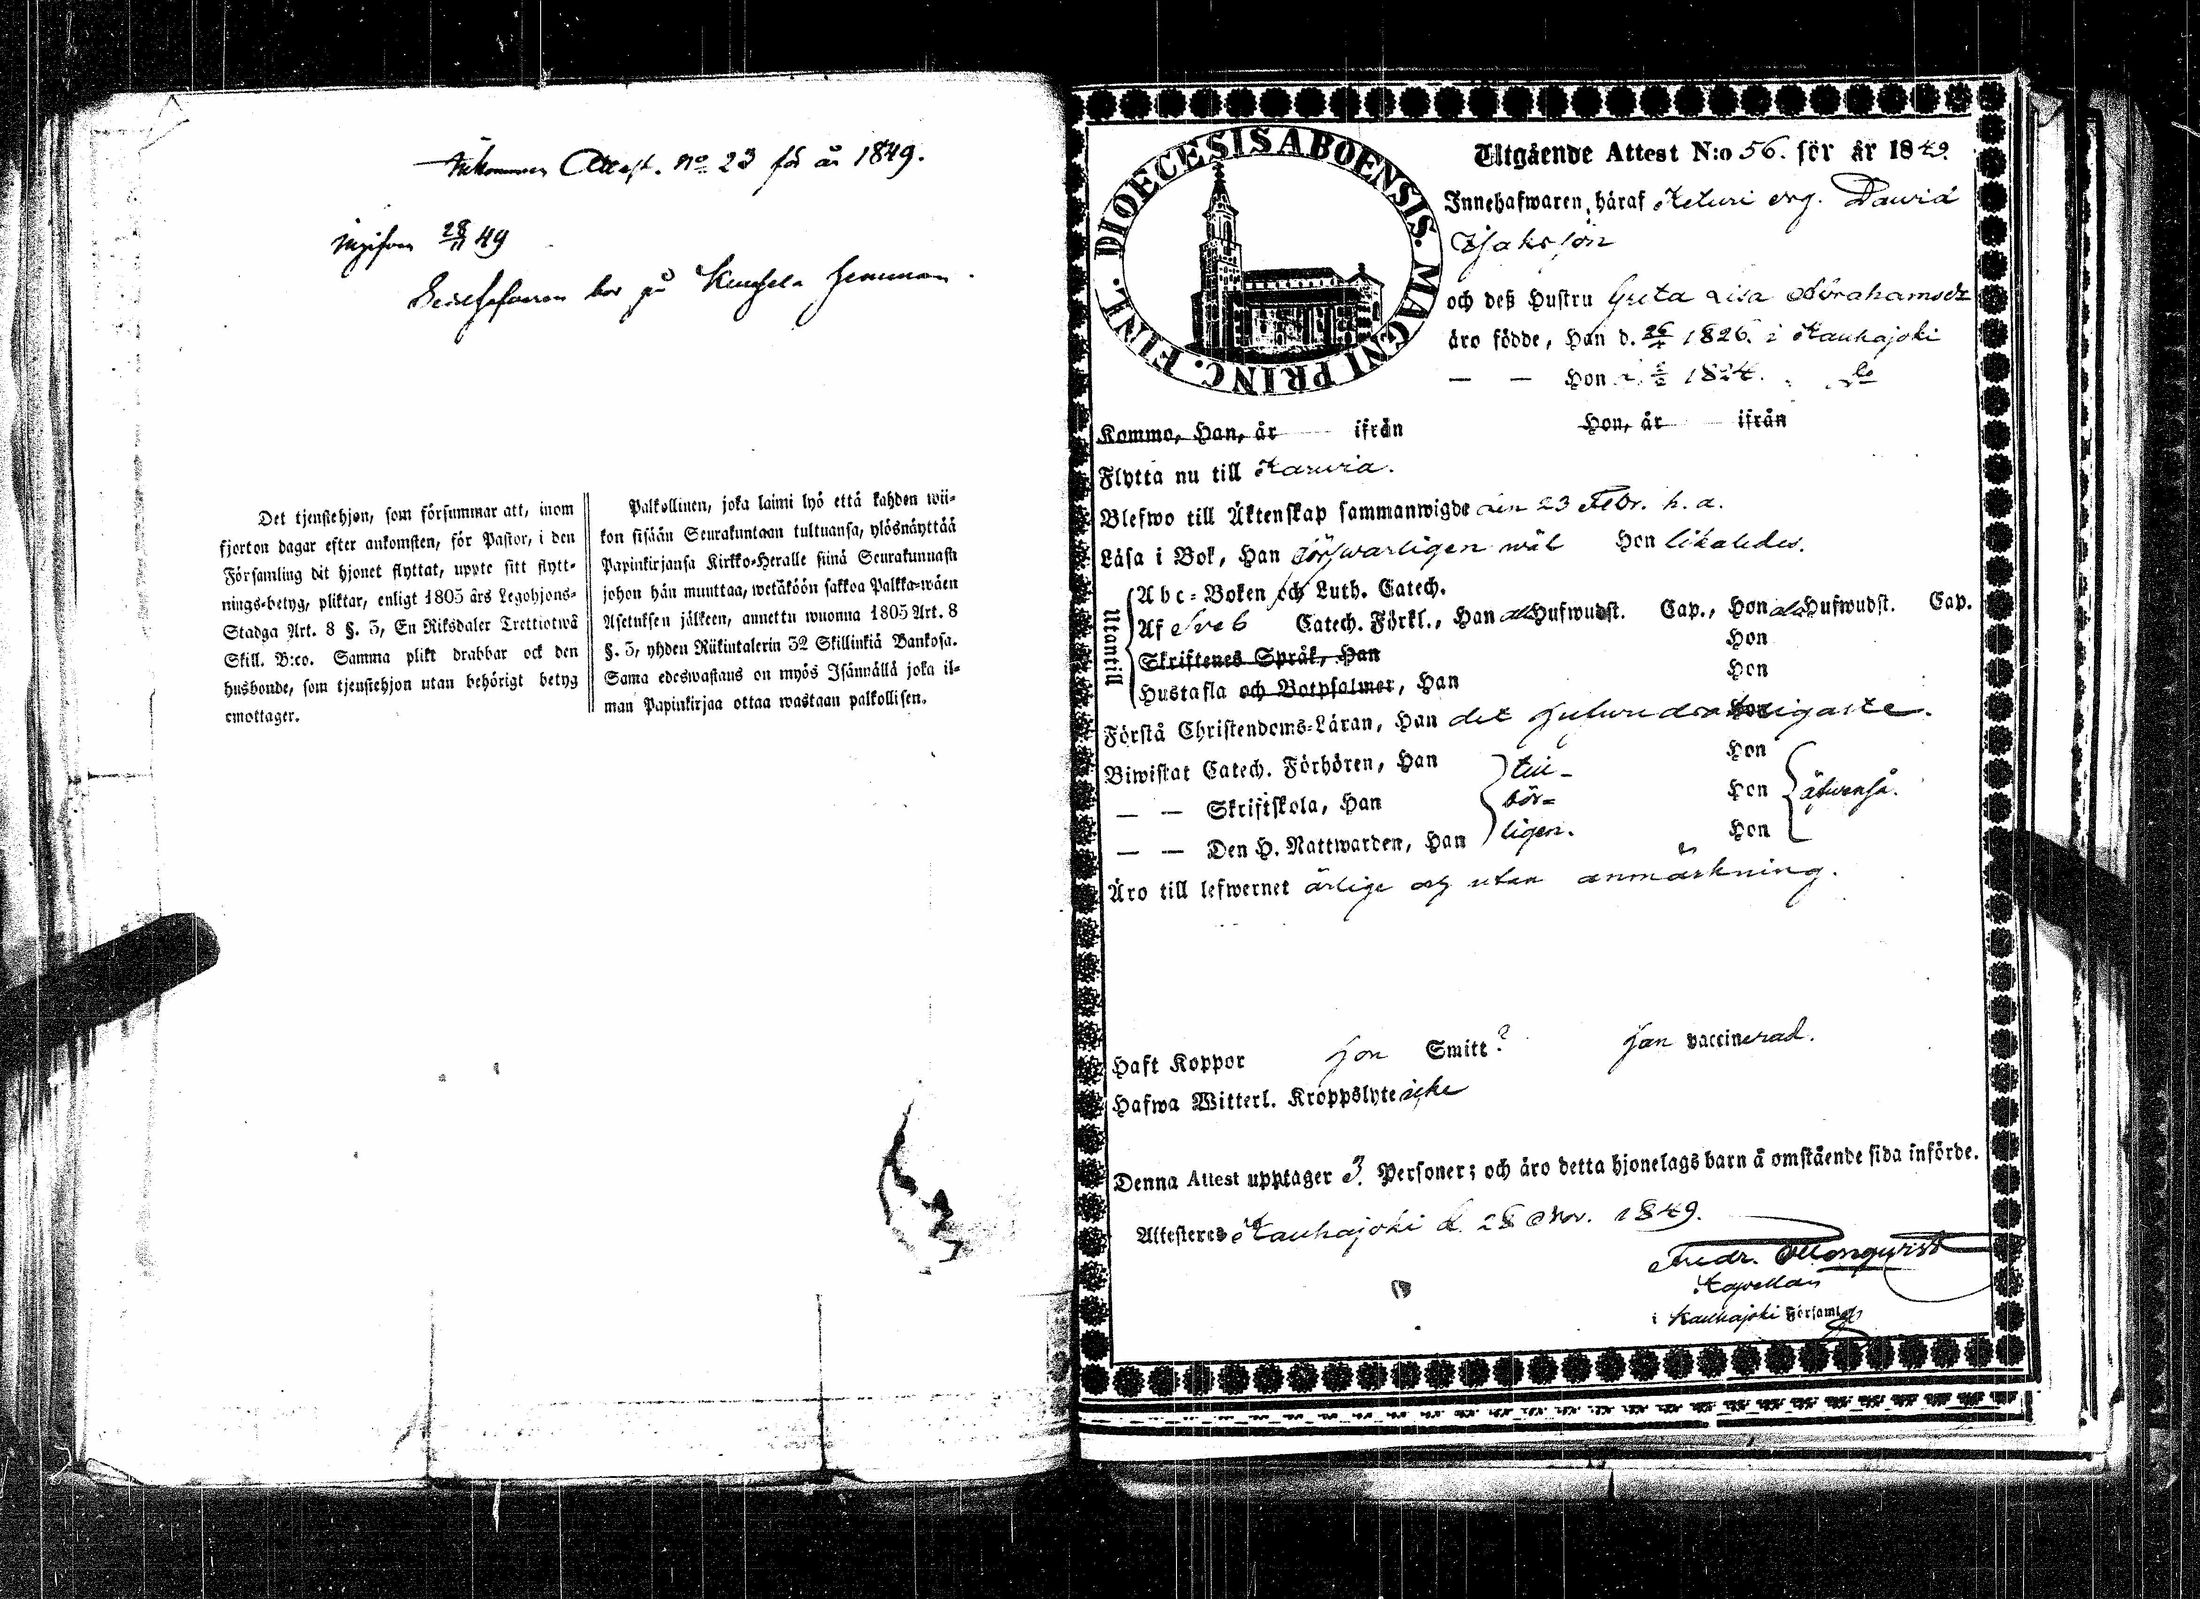 Inkommen Attest. No 23 för år 1849.
28/11 49
bor på hemman.
Det tjenstehjon, som försummar att, inom
fjorton dagar efter ankomsten, för Pastor, i den
Församling dit hjonet flyttat, uppte sitt flytt-
nings-betyg, pliktar, enligt 1805 års Legohjons-
Stadga Art. 8 §. 5, En Riksdaler Trettiotwå
Skill. B:co. Samma plikt drabbar ock den
husbonde, som tjenstehjon utan behörigt betyg
emottager.
Palkollinen, joka laimi lyö että kahden wii-
kon sisään Seurakuntaan tultuansa, ylösnäyttää
Papinkirjansa Kirkko-Heralle siinä Seurakunnasn
johon hän muuttaa, wetäköön sakkoa Palkka-wäen
Asetuksen jälkeen, annettu wuonna 1805 Art. 8
§. 5, yhden Riikintalerin 32 Skillinkiä Bankosa.
Sama edeswastaus on myös Isännällä joka il-
man Papinkirjaa ottaa wastaan palkollisen.
DIOECESIS ABOENSIS. MAGNI PRINC. FINL.
Utgående Attest N:o 56. för år 1849.
Innehafwaren, häraf Keturi drg. David
Isaksson
och deß Hustru Greta Lisa Abrahamsdr
äro födde, Han d. 1826. i Kauhajoki
— — Hon 1824. do
Komma, Han, år ifrån Hon, år ifrån
Flytta nu till Karvia.
Blefwo till Äktenskap sammanwigde den 23 Febr. h. a.
Läsa i Bok, Han försvarligen wäl Hon likaledes.
Utantill
Abc-Boken och Luth. Catech.
Af Sveb Catech. Förkl., Han alla Hufwudst. Cap., Hon alla Hufwudst. Cap.
Skriftenes Språk, Han Hon
Hustafla och Botpsalmer, Han Hon
Förstå Christendoms-Läran, Han det hufwudsakligaste.
Biwistat Catech. Förhören, Han till- Hon
— — Skriftskola, Han bör- Hon äfwenså.
— — Den H. Nattwarden, Han ligen. Hon
Äro till lefwernet ärlige och utan anmärkning.
Haft Koppor Hon Smitt? Han vaccinerad.
Hafwa Witterl. Kroppslyte icke
Denna Attest upptager 3. Personer; och äro detta hjonelags barn å omstående sida införde.
Attesteres Kauhajoki d. 28 Nov. 1849.
Fredr. Ellonqvist
Kapellan
i Kauhajoki Församl